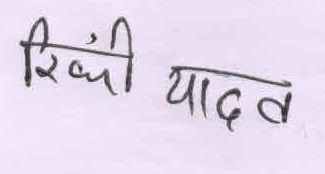 रिंकी यादव